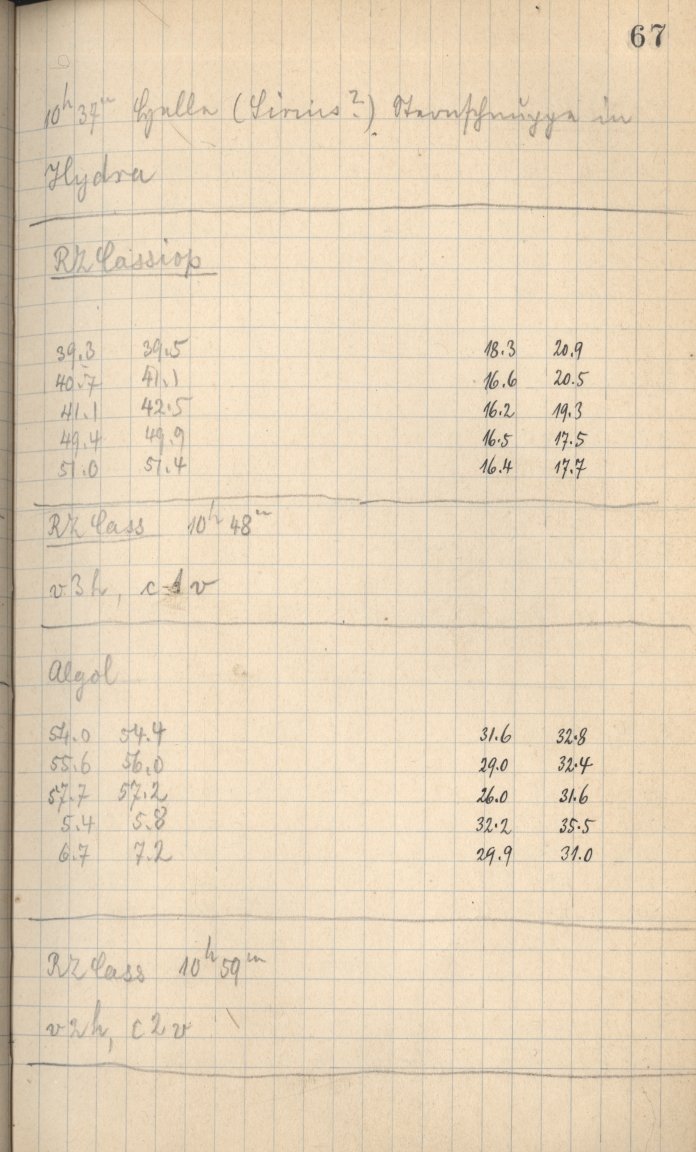 67
10h 37m Helle (Sirius?) Sternschnuppe in
Hydra
RZ Cassiop
39.3 39.5 18.3 20.9
40.7 41.1 16.6 20.5
41.1 42.5 16.2 19.3
49.4 49.9 16.5 17.5
51.0 51.4 16.4 17.7
RZ Cass 10h 48m
v 3 h, c 1 v
Algol
54.0 54.4 31.6 32.8
55.6 56.0 29.0 32.4
57.7 57.2 26.0 31.6
5.4 5.8 32.2 35.5
6.7 7.2 29.9 31.0
RZ Cass 10h 59m
v 2 h, c 2 v